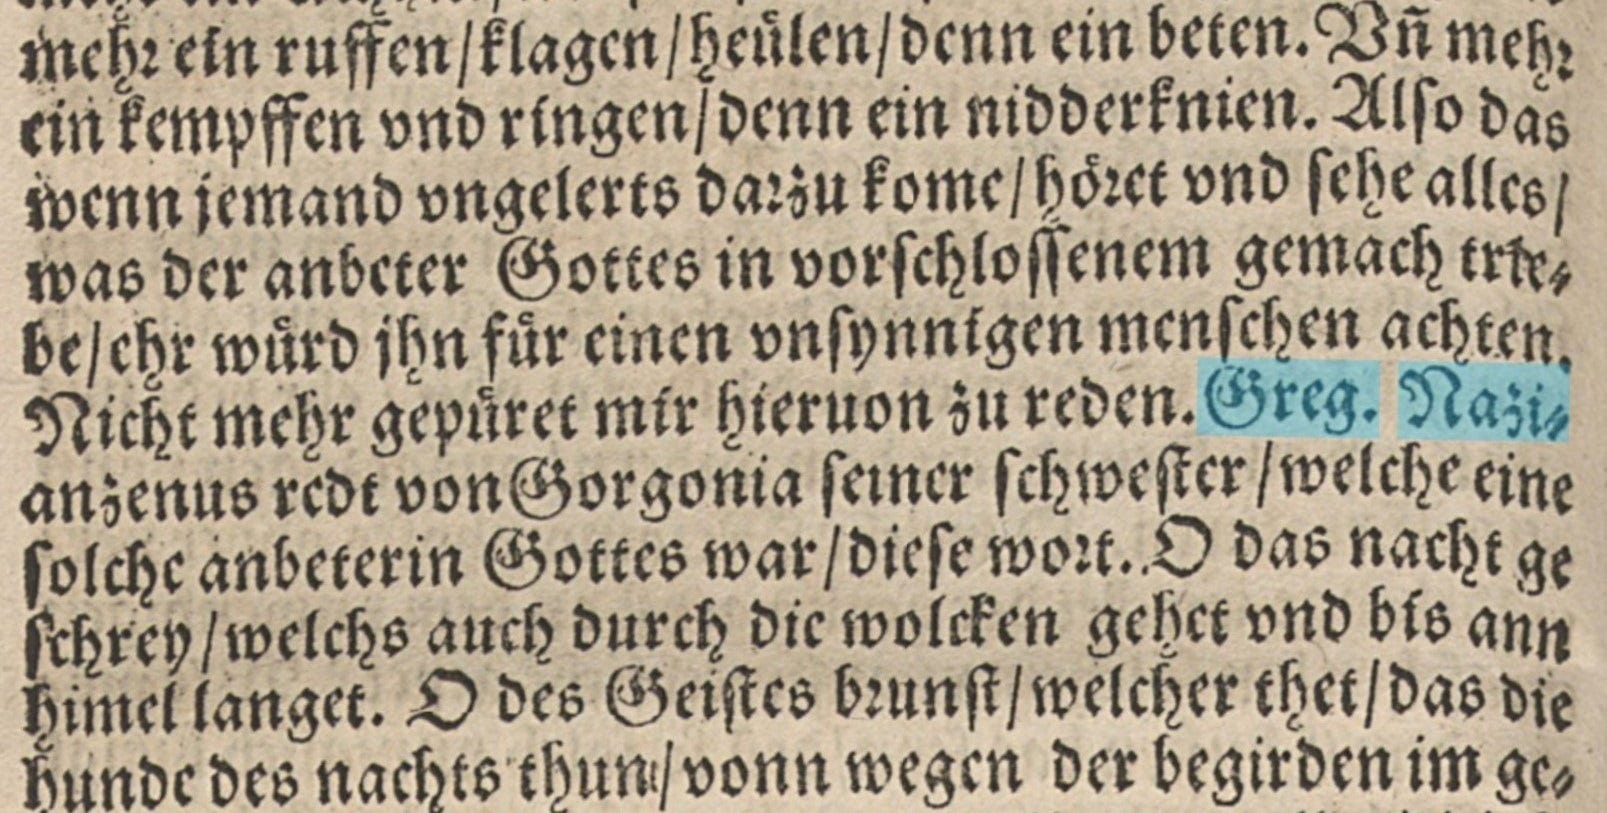 mehr ein ruffen/klagen/heülen/denn ein beten. Vñ mehr
ein kempffen vnd ringen/denn ein nidderknien. Also das
wenn jemand vngelerts darzu kome/höret vnd sehe alles/
was der anbeter Gottes in vorschlossenem gemach trie-
be/ehr würd jhn für einen vnsynnigen menschen achten.
Nicht mehr gepüret mir hieruon zu reden. Greg. Nazi-
anzenus redt von Gorgonia seiner schwester/welche eine
solche anbeterin Gottes war/diese wort. O das nacht ge
schrey/welchs auch durch die wolcken gehet vnd bis ann
himel langet. O des Geistes brunst/welcher thet/das die
hunde des nachts thun/vonn wegen der begirden im ge-